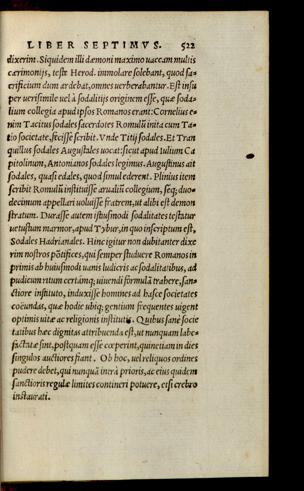 LIBER SEPTIMVS. 522
dixerim. Siquidem illi dæmoni maximo uaccam multis
cærimonijs, teste Herod. immolare solebant, quod sa-
crificium dum ardebat, omnes uerberabantur. Est insu
per uerisimile uel à sodalitijs originem esse, quæ soda-
lium collegia apud ipsos Romanos erant: Cornelius e-
nim Tacitus sodales sacerdotes Romulũ inita cum Ta-
tio societate, fecisse scribit. Vnde Titij sodales. Et Tran
quillus sodales Augustales uocat: sicut apud Iulium Ca
pitolinum, Antonianos sodales legimus. Augustinus ait
sodales, quasi edales, quod simul ederent. Plinius item
scribit Romulũ instituisse arualiũ collegium, seq; duo-
decimum appellari uoluisse fratrem, ut alibi est demon
stratum. Durasse autem istiusmodi sodalitates testatur
uetustum marmor, apud Tybur, in quo inscriptum est,
Sodales Hadrianales. Hinc igitur non dubitanter dixe
rim nostros põtifices, qui semper studuere Romanos in
primis ab huiusmodi uanis ludicris ac sodalitatibus, ad
pudicum ritum certámq; uiuendi formulã trahere, san-
ctiore instituto, induxisse homines ad hasce societates
coëundas, quæ hodie ubiq; gentium frequentes uigent
optimis uitæ ac religionis institutis. Quibus sanè socie
tatibus hæc dignitas attribuenda est, ut nunquam labe-
factatæ sint, postquam esse cœperint, quinetiam in dies
singulos auctiores fiant. Ob hoc, uel reliquos ordines
pudere debet, qui nunquã intra prioris, ac eius quidem
sanctioris regulæ limites contineri potuere, etsi crebro
instaurati.